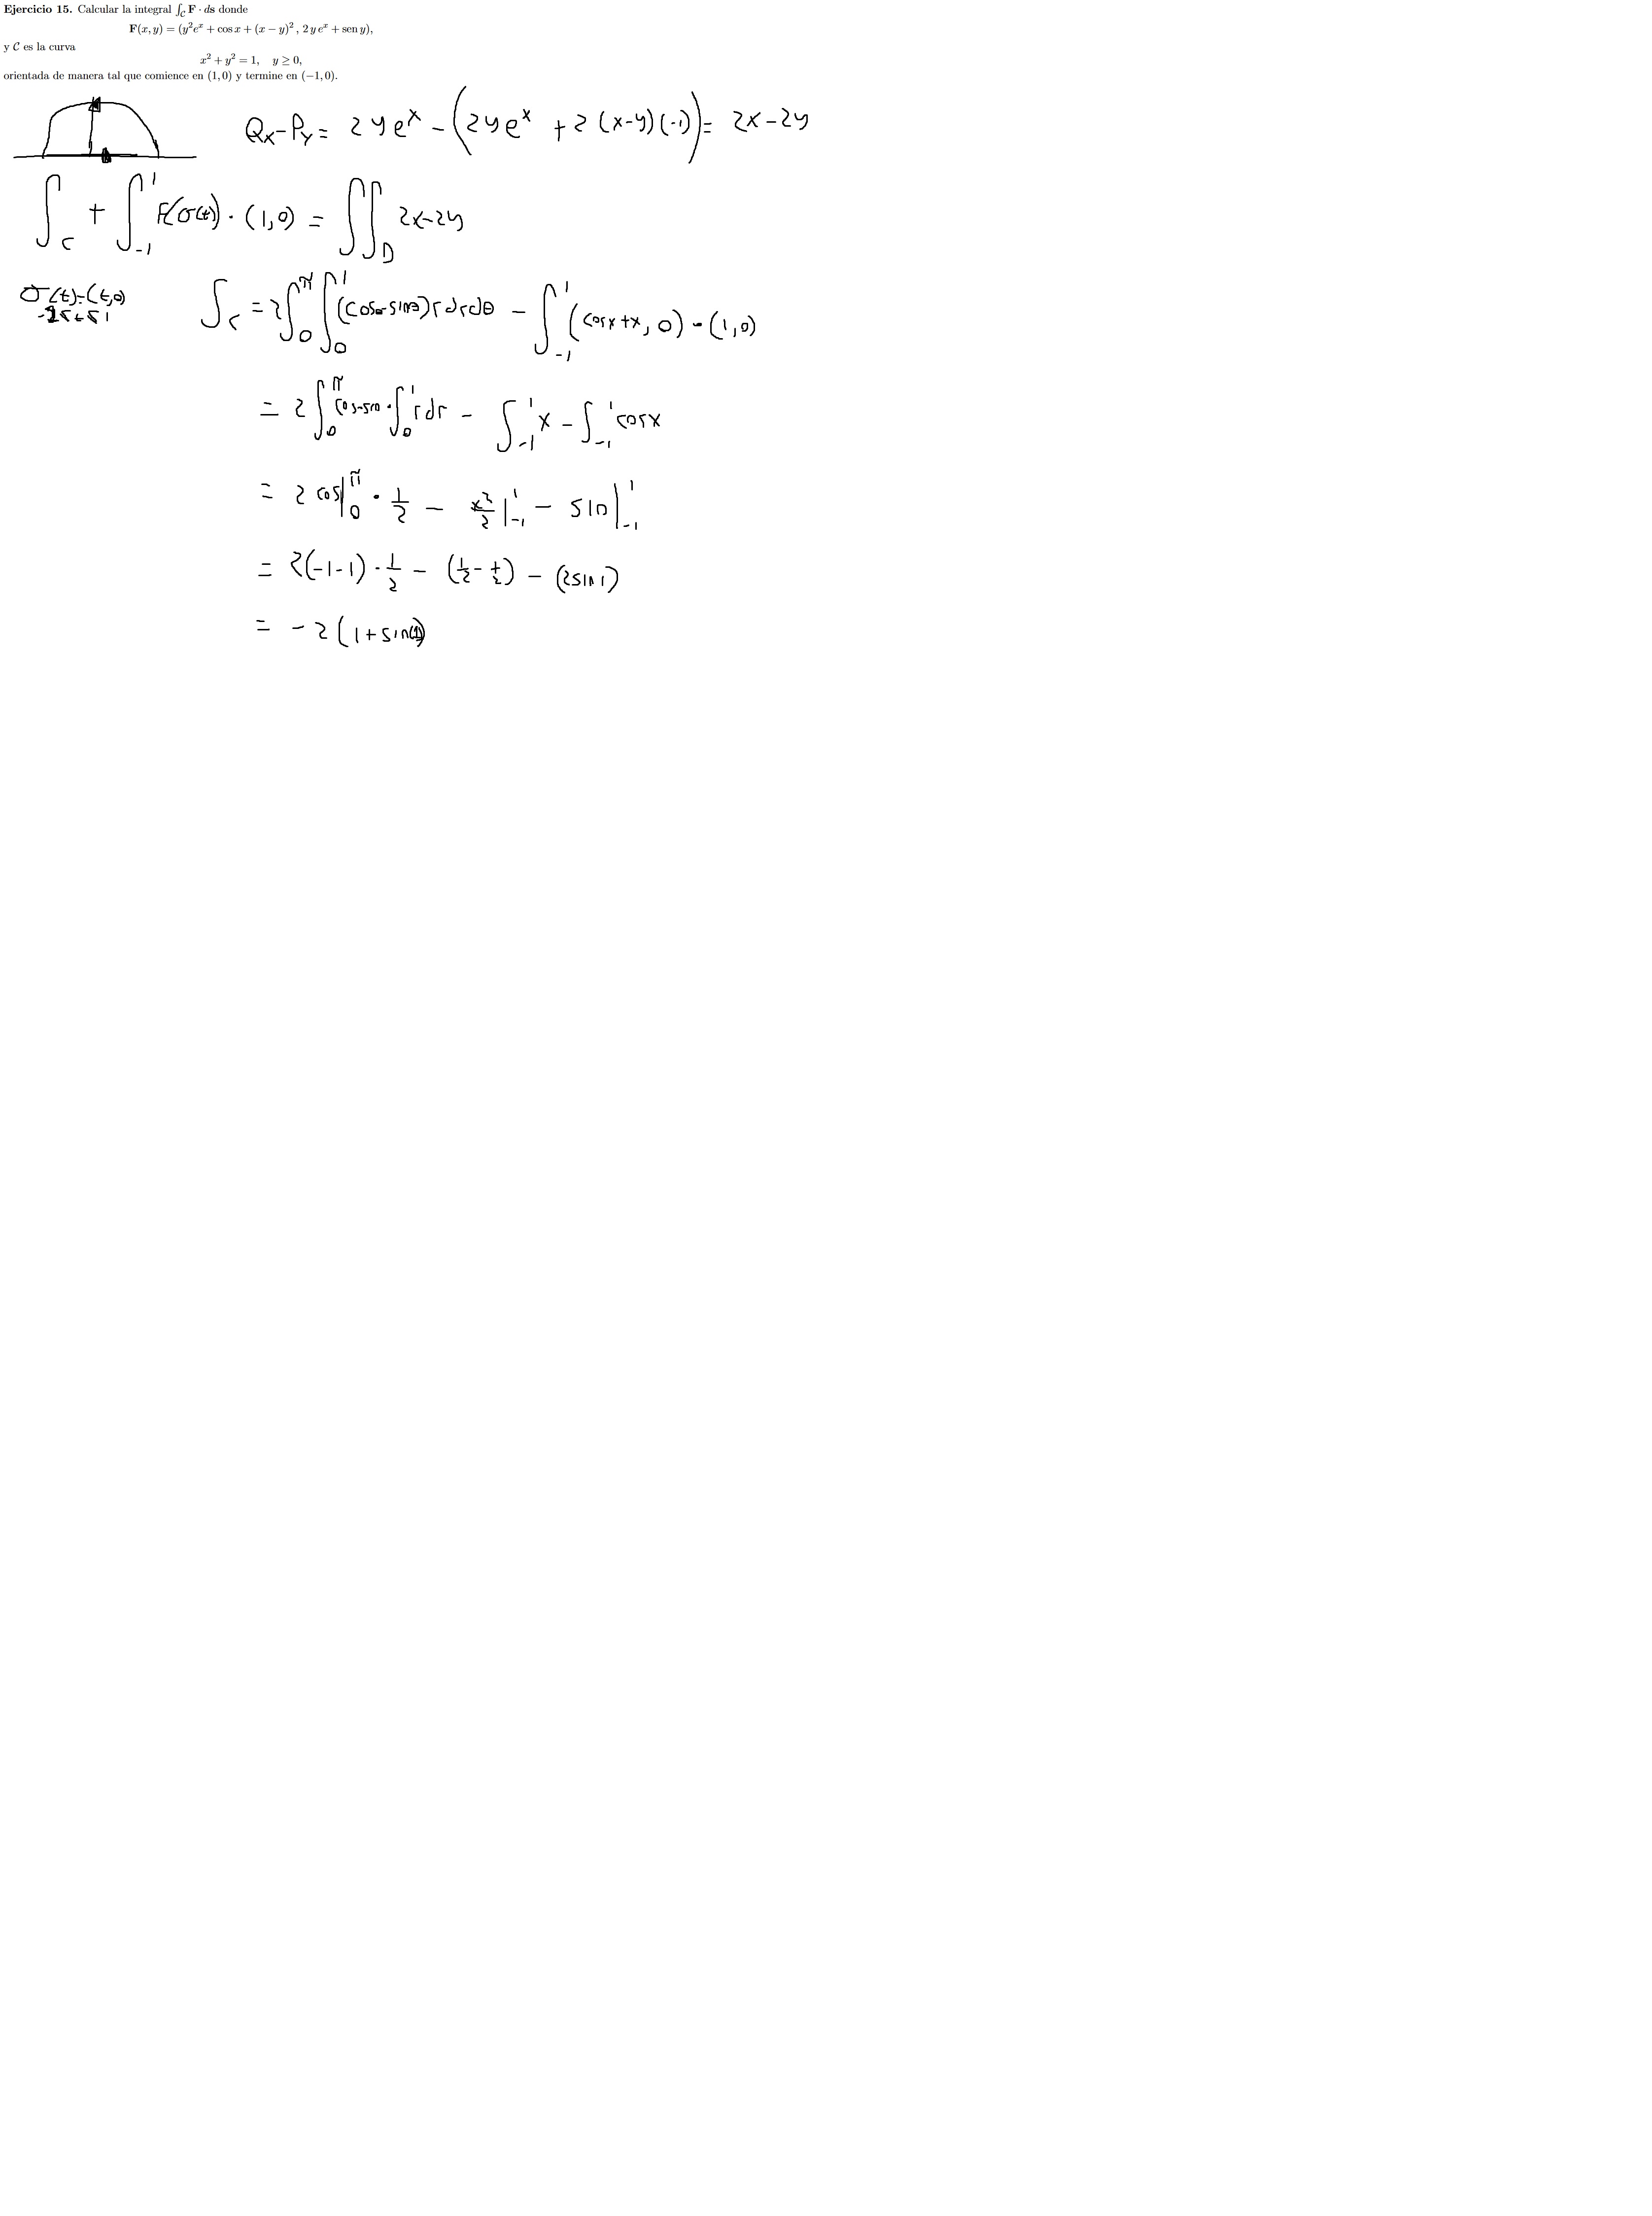 Ejercicio 15. Calcular la integral ∫_C F · ds donde
F(x, y) = (y²eˣ + cos x + (x − y)² , 2 y eˣ + sen y),
y C es la curva
x² + y² = 1, y ≥ 0,
orientada de manera tal que comience en (1, 0) y termine en (−1, 0).
Qx - Py = 2yeˣ - (2yeˣ + 2(x-y)(-1)) = 2x - 2y
∫_C + ∫_{-1}^{1} F(σ(t)) · (1,0) = ∬_D 2x-2y
σ(t)=(t,0)
-1≤t≤1
∫_C = 2∫_0^π ∫_0^1 (cosθ-sinθ) r dr dθ - ∫_{-1}^{1} (cosx+x, 0) · (1,0)
= 2 ∫_0^π cos-sin · ∫_0^1 r dr - ∫_{-1}^{1} x - ∫_{-1}^{1} cosx
= 2 cos|_0^π · 1/2 - x²/2|_{-1}^{1} - sin|_{-1}^{1}
= 2(-1-1) · 1/2 - (1/2 - 1/2) - (2sin1)
= -2(1+sin(1))